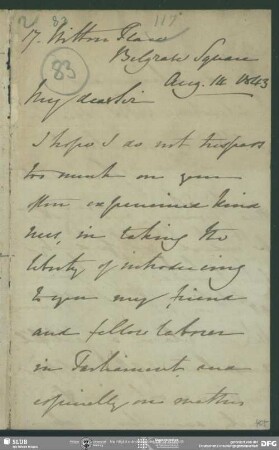 2 82 117
17. Wilton Place
Belgrave Square
83
Aug. 14 1843
My dear Sir
I hope I do not trespass
too much on your
often experienced kind
ness, in taking the
liberty of introducing
to you my friend
and fellow laborer
in Parliament, and
especially on matters